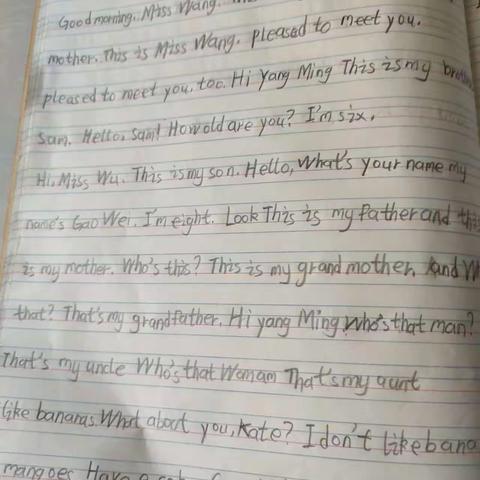 Good morning. Miss Wang.
mother. This is Miss Wang. pleased to meet you.
pleased to meet you. too. Hi Yang Ming This is my
Sam. Hello, Sam! How old are you? I'm six.
Hi, Miss Wu. This is my son. Hello, What's your name my
name's Gao Wei. I'm eight. Look This is my father and this
is my mother. Who's this? This is my grandmother. And
that? That's my grandfather. Hi yang Ming Who's that man?
That's my uncle Who's that Womam That's my aunt
like bananas. What about you, Kate? I don't like bana
mangoes Have a